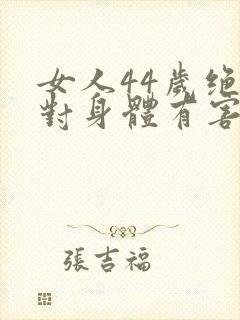 女人44歲绝
對身體有害
張吉福